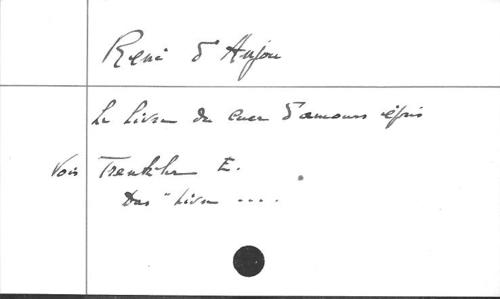 René d'Anjou
Le Livre du cuer d'amours épris
Vois Trenkler E.
Das "Livre ....